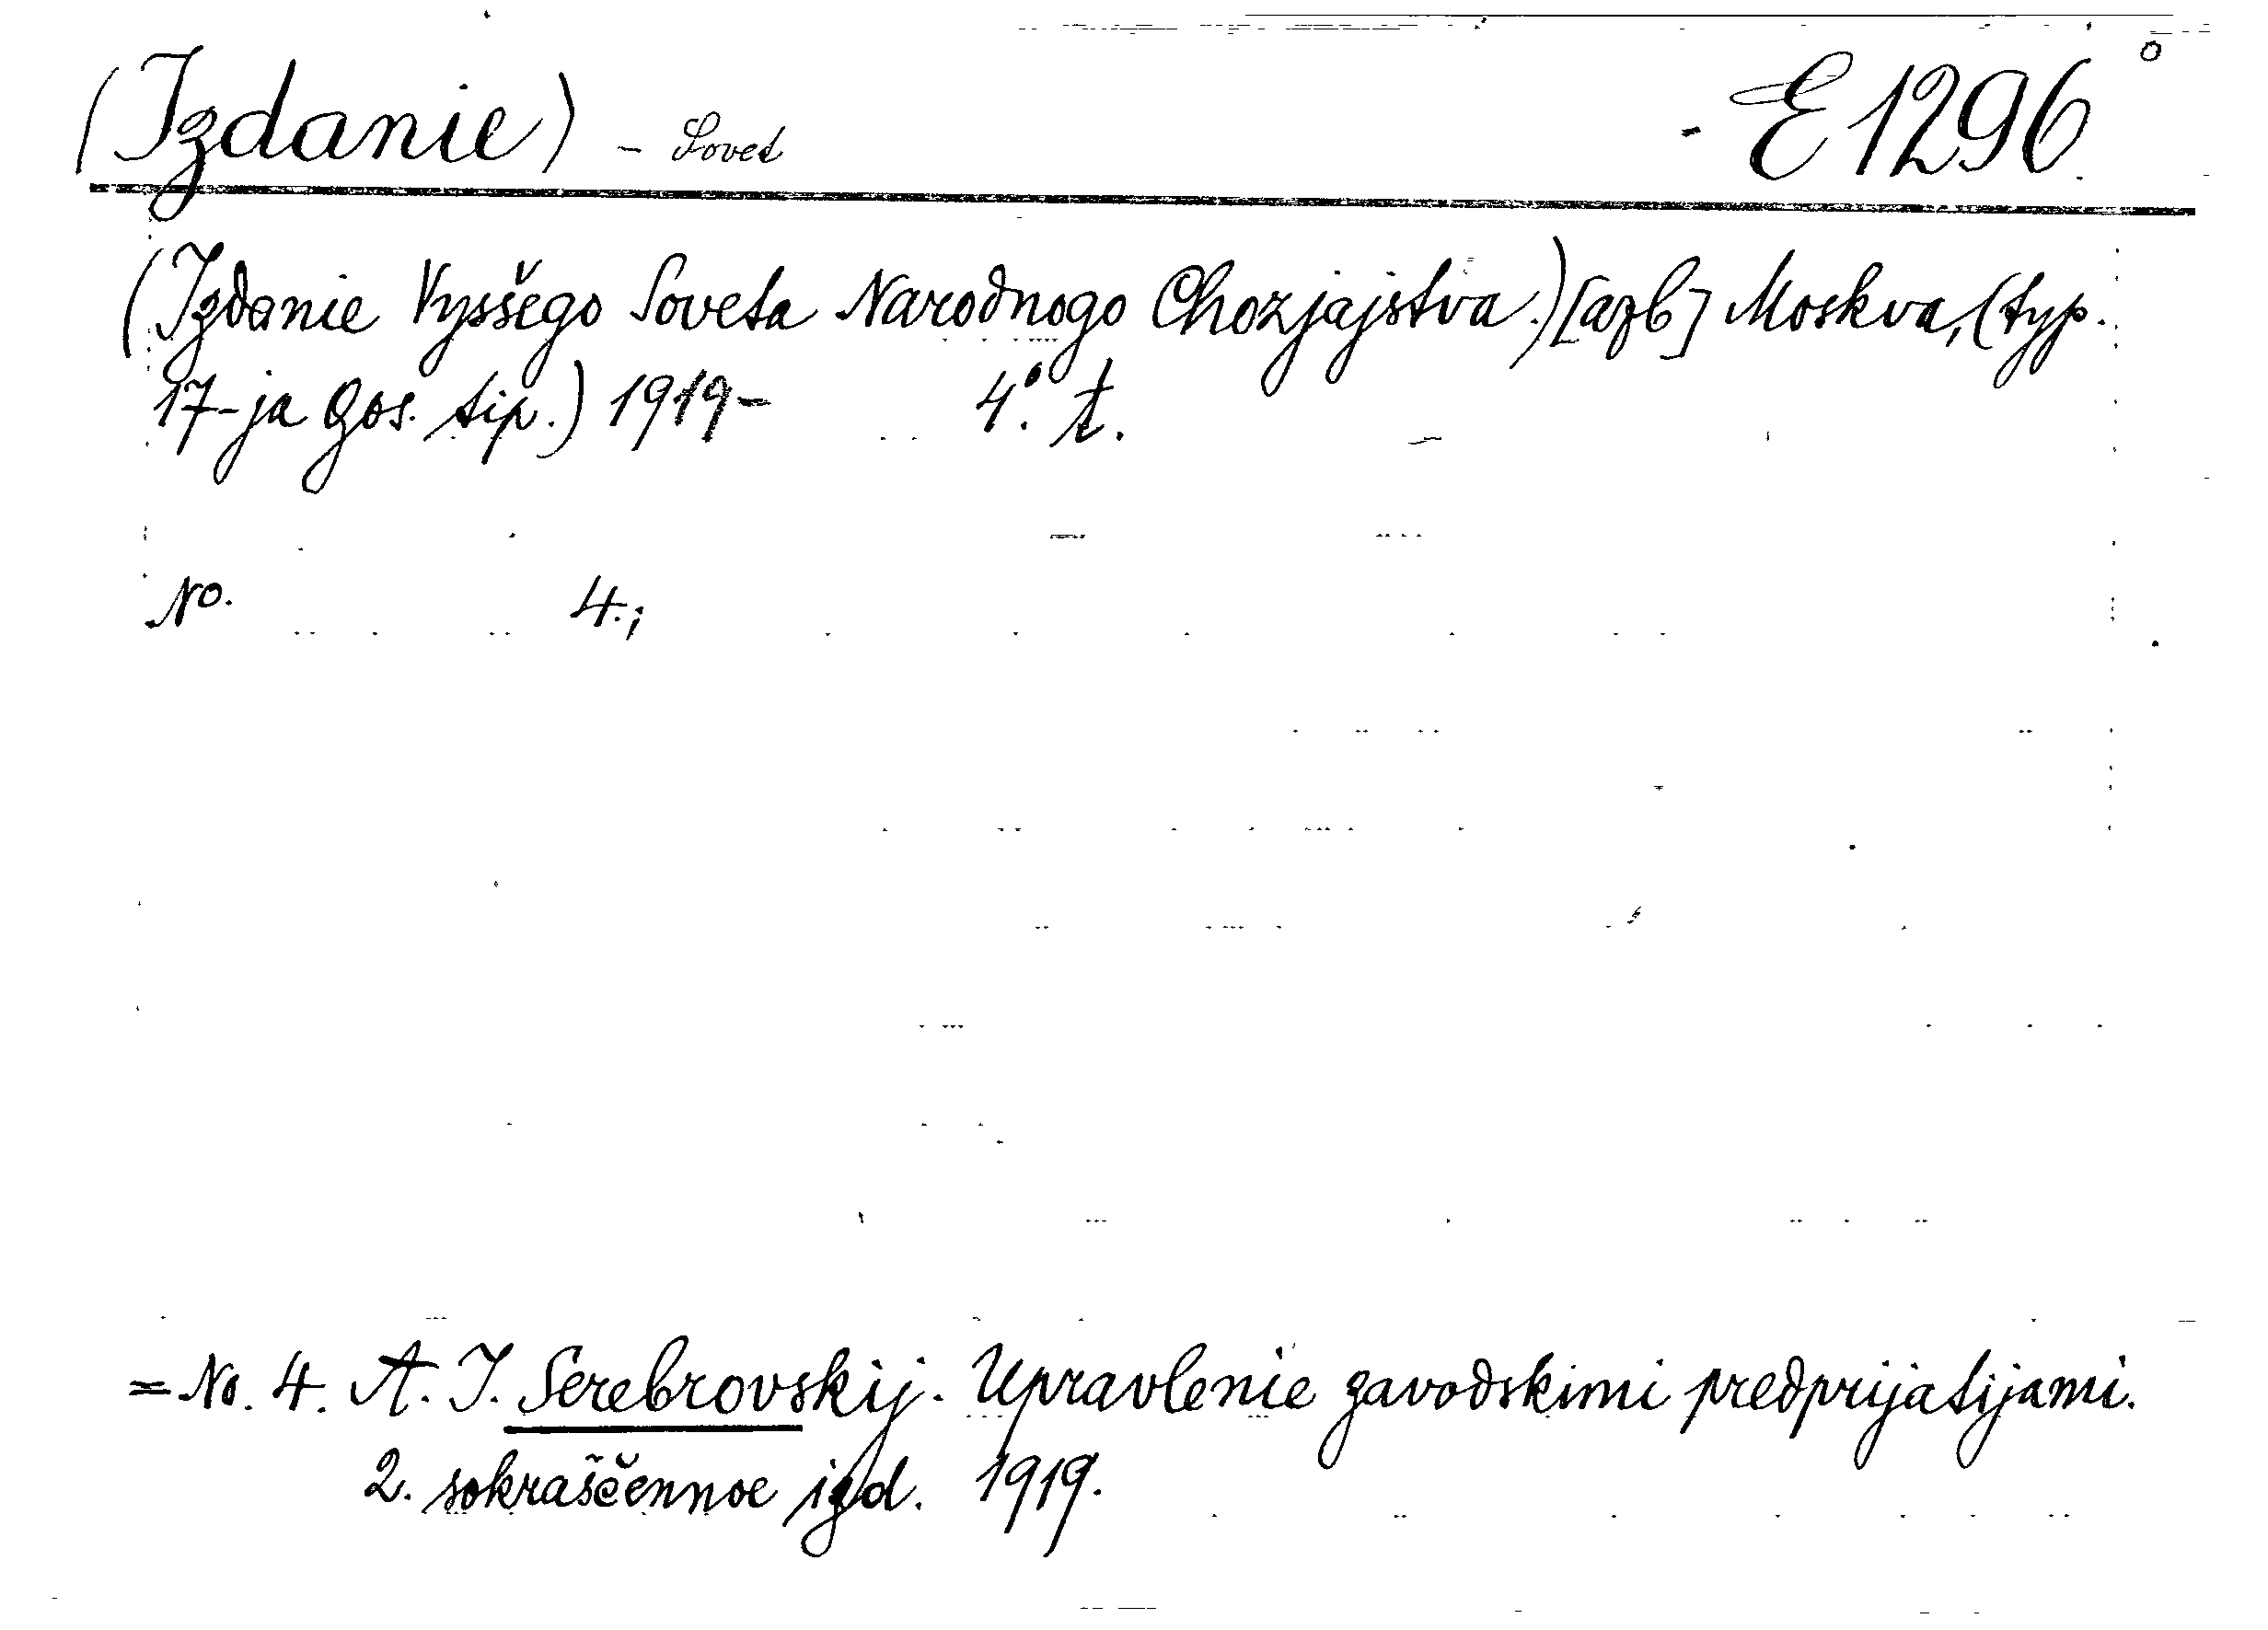 (Izdanie) - Sovet - E 1296.°
(Izdanie Vysšego Soveta Narodnogo Chozjajstva.) [azb] Moskva, (typ.
17-ja Gos. tip.) 1919- 4°. t.
No. 4.;
= No. 4. A. I. Serebrovskij. Upravlenie zavodskimi predprijatijami.
2. sokraščennoe izd. 1919.